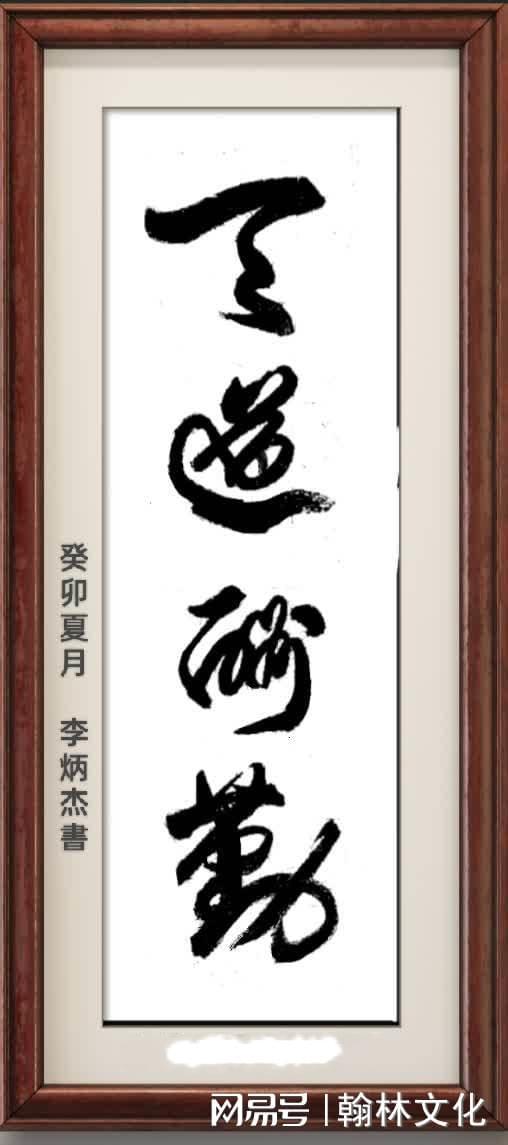 天道酬勤
癸卯夏月 李炳杰書
网易号 | 翰林文化